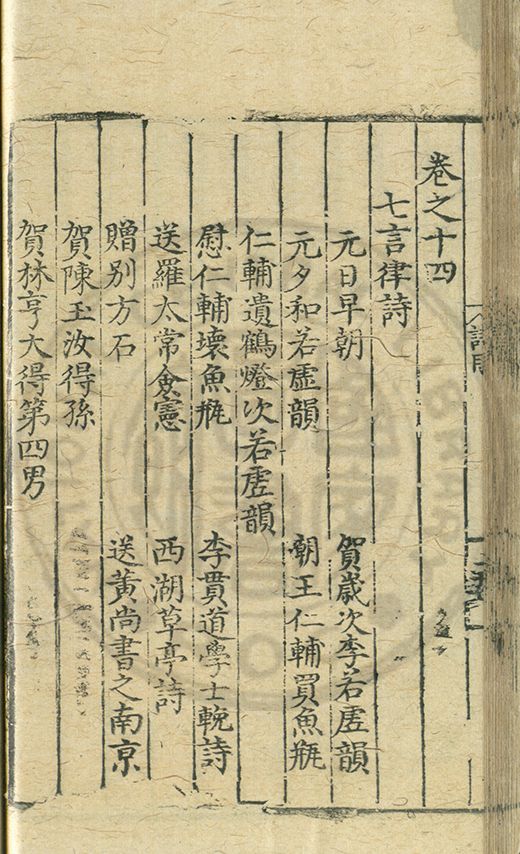 卷之十四
七言律詩
元日早朝 賀歲次李若虛韻
元夕和若虛韻 朝王仁輔買魚瓶
仁輔遺鶴燈次若虛韻
慰仁輔壞魚瓶 李貫道學士輓詩
送羅太常僉憲 西湖草亭詩
贈別方石 送黃尚書之南京
賀陳玉汝得孫
賀林亨大得第四男